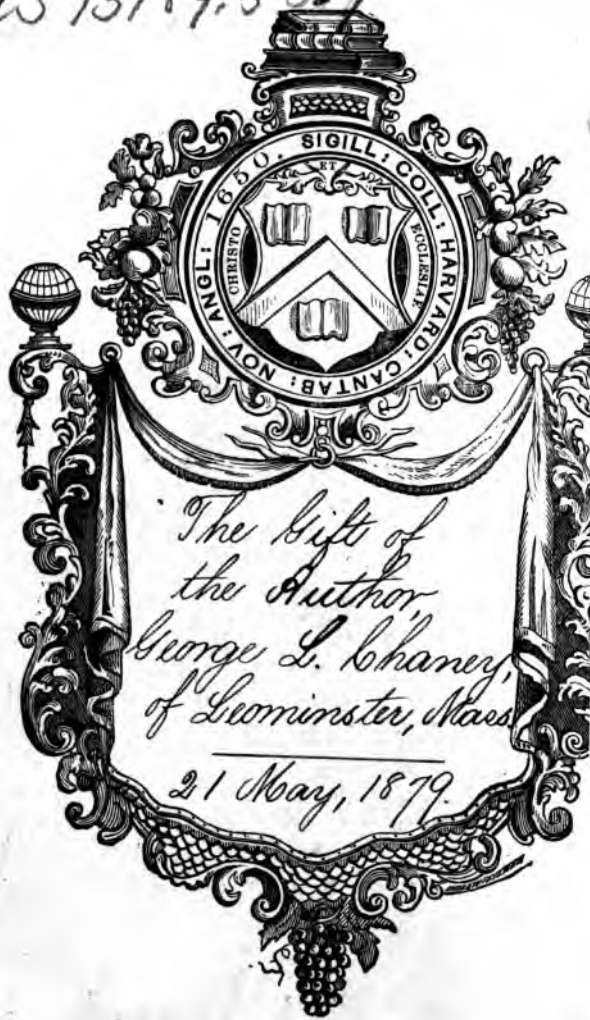 SIGILL: COLL: HARVARD: CANTAB: NOV: ANGL: 1650.
CHRISTO ET ECCLESIÆ
The Gift of
the Author,
George L. Chaney,
of Leominster, Mass
21 May, 1879.